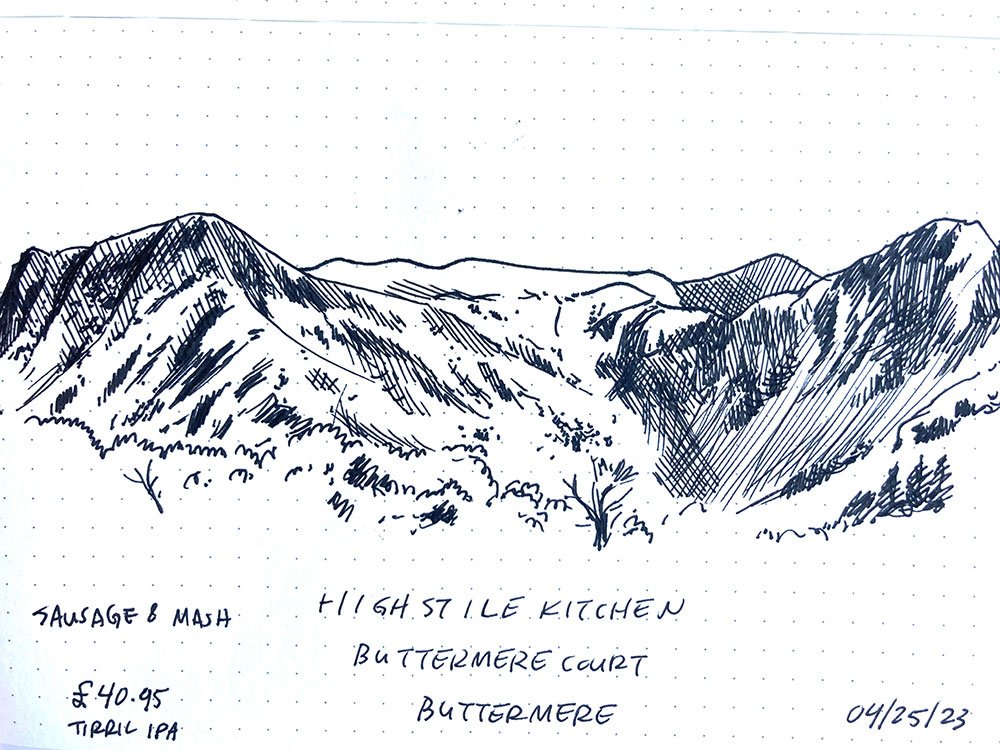 SAUSAGE & MASH
£40.95
TIRRIL IPA
HIGH STILE KITCHEN
BUTTERMERE COURT
BUTTERMERE
04/25/23